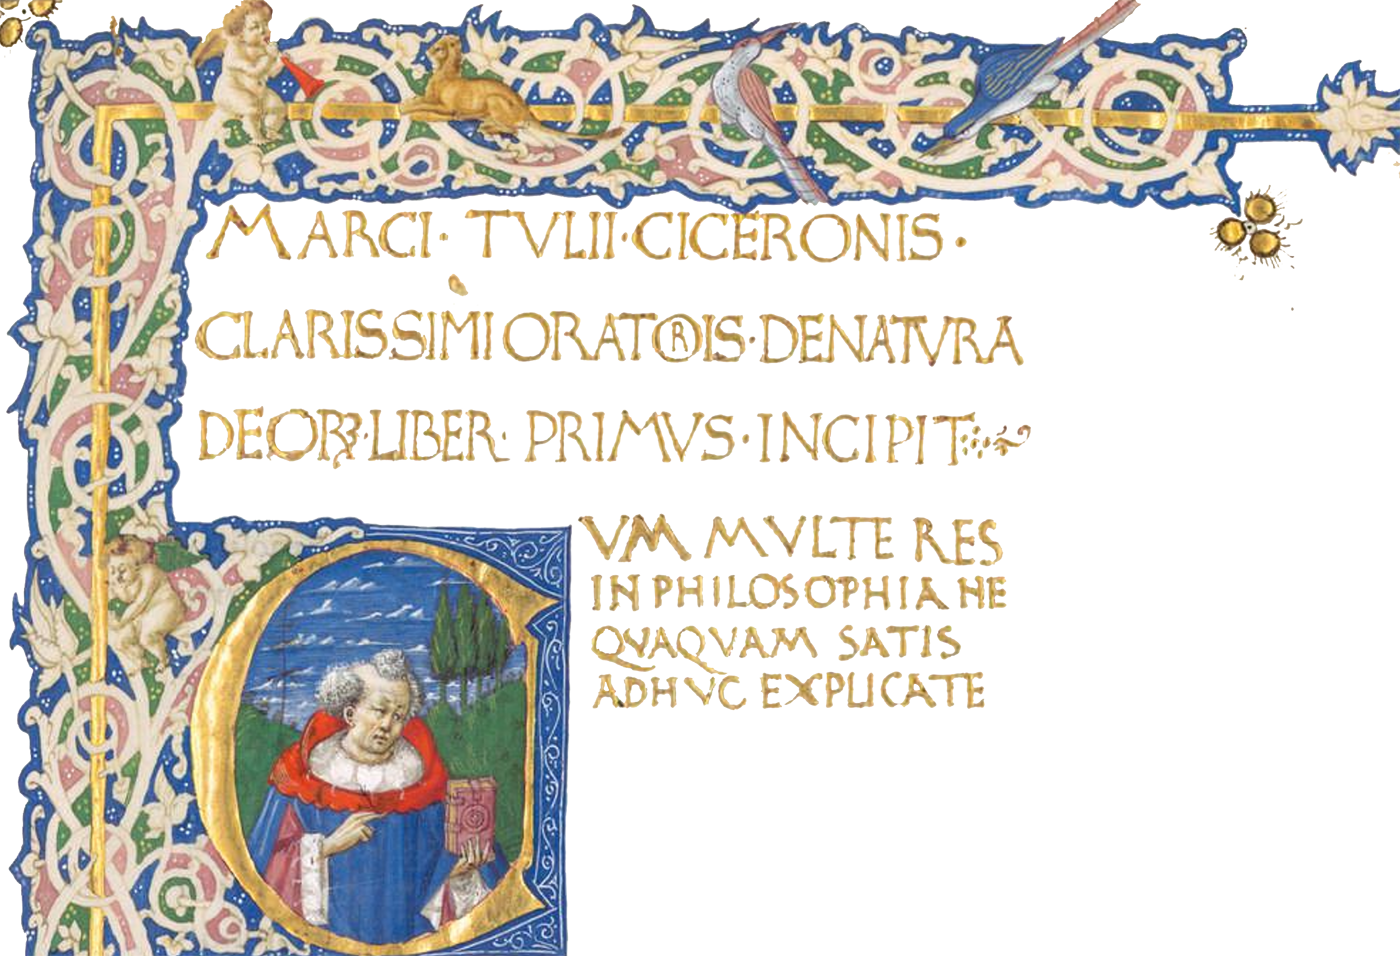 MARCI · TVLII · CICERONIS ·
CLARISSIMI ORATORIS · DE NATVRA
DEORꝜ · LIBER · PRIMVS · INCIPIT
CVM MVLTE RES
IN PHILOSOPHIA NE
QVAQVAM SATIS
ADHVC EXPLICATE